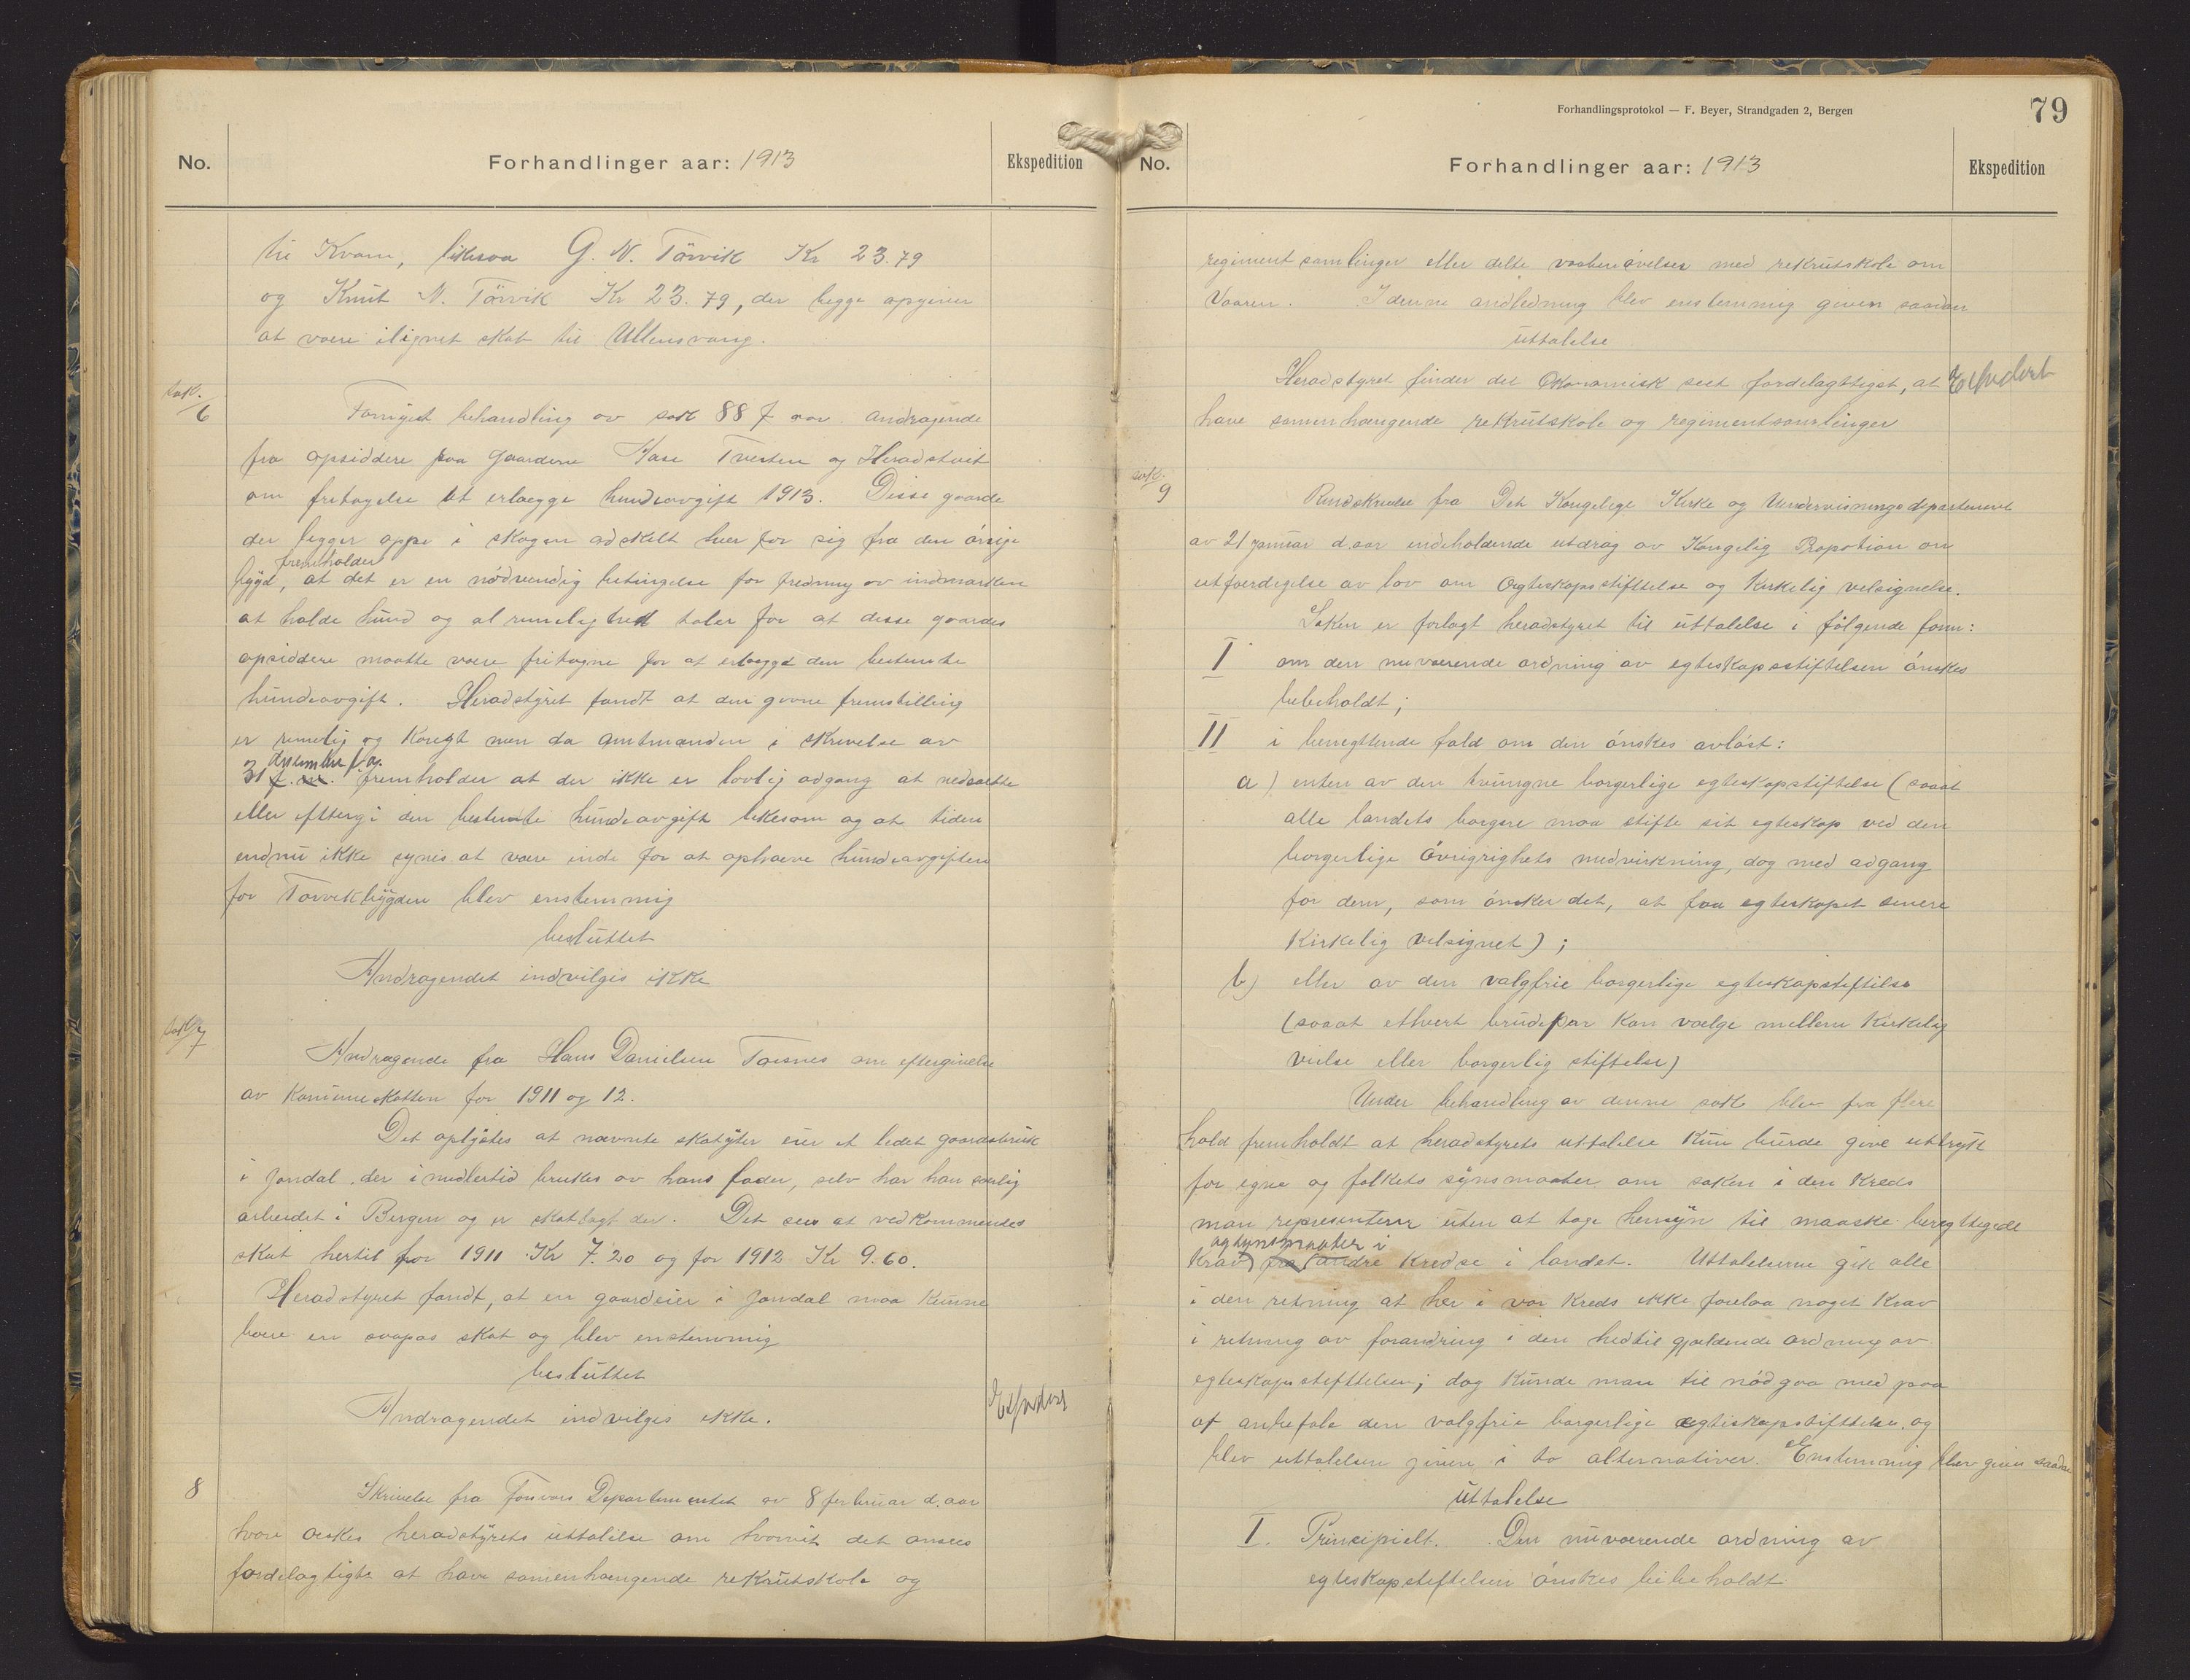 No.
Forhandlinger aar: 1913
Ekspedition
til Kvam, likesaa G. N. Törvik Kr 23.79
og Knut N. Törvik Kr 23.79, der begge opgiver
at være ilignet skat til Ullensvang.
sak. 6
Fornyet behandling av sak 88 f. aar andragende
fra opsiddere paa gaardene Kase Tveiten og Heradstveit
om fritagelse at erlægge hundeavgift 1913. Disse gaarde
der ligger oppe i skogen adskilt hver for sig fra den övrige
fremholder
bygd, at det er en nödvendig betingelse for fredning av indmarken
at holde hund og al rimelighed taler for at disse gaardes
opsiddere maatte være fritagne for at erlægge den bestemte
hundeavgift. Heradstyret fandt at den givne fremstilling
er rimelig og korekt men da amtmanden i skrivelse av
desember f. a.
31 f. m. fremholder at der ikke er lovlig adgang at nedsætte
eller eftergi den bestemte hundeavgift likesom og at tiden
endnu ikke synes at være inde for at ophæve hundeavgiften
for Torvikbygden blev enstemmig
besluttet
Andragendet indvilges ikke
sak 7
Andragende fra Hans Danielsen Torsnes om eftergivelse
av Komuneskatten for 1911 og 12.
Det oplystes at nævnte skatyter eier et lidet gaardsbruk
i Jondal, der imidlertid brukes av hans fader, selv har han særlig
arbeidet i Bergen og er skatlagt der. Det sees at vedkommendes
skat hertil for 1911 Kr 7.20 og for 1912 Kr 9.60.
Heradstyret fandt, at en gaardeier i Jondal maa kunne
bære en saapas skat og blev enstemmig
besluttet
Andragendet indvilges ikke.
Expedert
8
Skrivelse fra Forsvars Departementet av 8 februar d. aar
hvori æskes heradstyrets uttalelse om hvorvit det ansees
fordelagtigst at have samenhængende rekrutskole og
Forhandlingsprotokol — F. Beyer, Strandgaden 2, Bergen
79
No.
Forhandlinger aar: 1913
Ekspedition
regimentsamlinger eller delte vaabenövelser med rekrutskole om
Vaaren. I denne andledning blev enstemmig given saadan
uttalelse
Heradstyret finder det Økonomisk sect fordelagtigst, at
Expedert
have samenhængende rekrutskole og regimentsamlinger
sak. 9
Rundskrivelse fra Det Kongelige Kirke og Undervisningsdepartement
av 21 januar d. aar indeholdende utdrag av Kongelig Propotion om
utfærdigelse av lov om Ægteskapsstiftelse og Kirkelig velsignelse.
Saken er forlagt heradstyret til uttalelse i fölgende form:
I om den nuværende ordning av egteskapsstiftelsen önskes
bebeholdt;
II i benegtende fald om den önskes avlöst:
a) enten av den tvungne borgerlige egteskapstiftelse (saaat
alle landets borgere maa stifte sit egteskap ved den
borgerlige övrigrighets medvirkning, dog med adgang
for dem, som önsker det, at faa egteskapet senere
Kirkelig velsignet);
b) eller av den valgfrie borgerlige egteskapstiftelse
(saaat ethvert brudepar kan vælge mellem Kirkelig
vielse eller borgerlig stiftelse)
Under behandling av denne sak blev fra flere
hold fremholdt at heradstyrets uttalelse kun burde give uttryk
for egne og folkets synsmaater om saken i den Kreds
man representerer uten at tage hensyn til maaske beregttigede
og synsmaater i
Krav fra andre Kredse i landet. Uttalelserne gik alle
i den retning at her i vor Kreds ikke forelaa noget Krav
i retning av forandring i den hedtil gjældende ordning av
egteskapsstifttelsen; dog kunde man til nöd gaa med paa
at anbefale den valgfrie borgerlige ægteskapstifttelse, og
blev uttalelsen given i to alternativer. Enstemmig blev given saadan
uttalelse
I. Principielt. Den nuværende ordning av
egteskapstiftelsen önskes beibeholdt